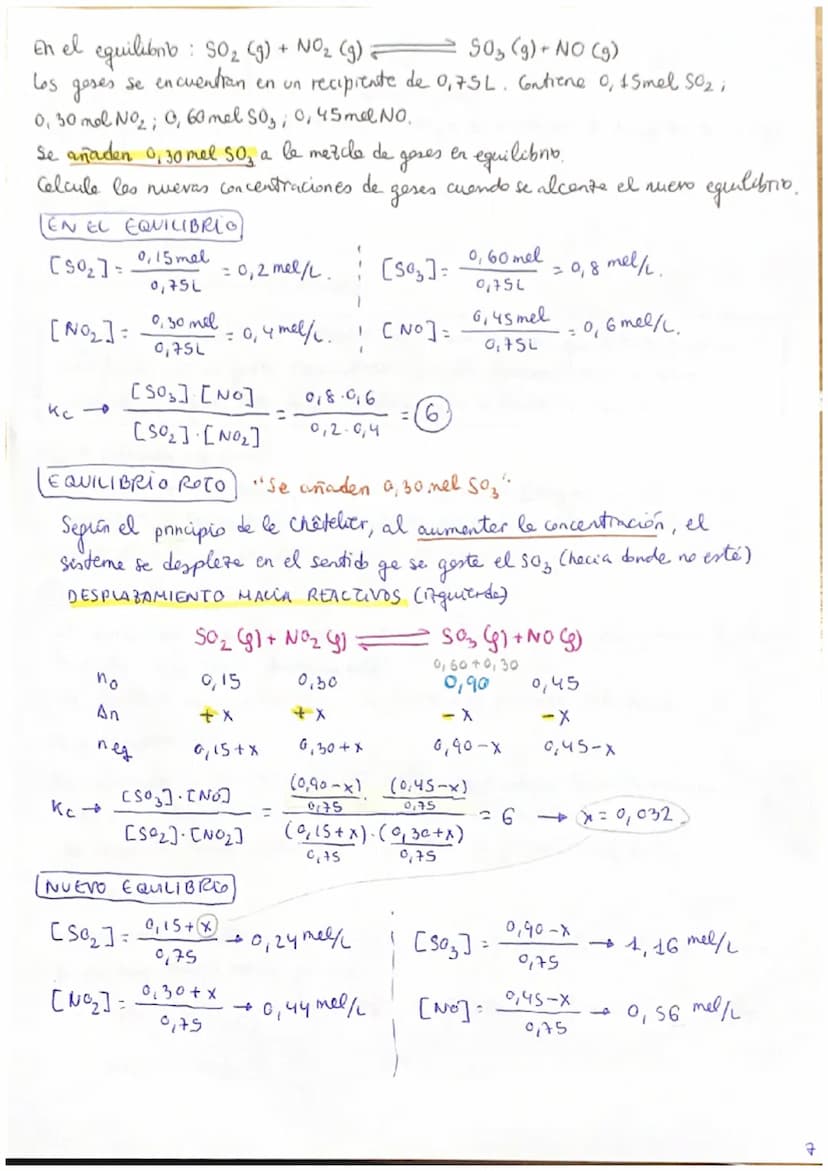 En el equilibrio : SO₂ (g) + NO₂ (g) ⇌ SO₃ (g) + NO (g)
Los gases se encuentran en un recipiente de 0,75L. Contiene 0,15mol SO₂ ;
0,30 mol NO₂ ; 0,60 mol SO₃ ; 0,45 mol NO.
Se añaden 0,30 mol SO₃ a la mezcla de gases en equilibrio.
Calcula las nuevas concentraciones de gases cuando se alcanza el nuevo equilibrio.
EN EL EQUILIBRIO
[SO₂] = 0,15mol / 0,75L = 0,2 mol/L. [SO₃] = 0,60 mol / 0,75L = 0,8 mol/L.
[NO₂] = 0,30 mol / 0,75L = 0,4 mol/L. [NO] = 0,45 mol / 0,75L = 0,6 mol/L.
Kc → [SO₃]·[NO] / [SO₂]·[NO₂] = 0,8·0,6 / 0,2·0,4 = 6
EQUILIBRIO ROTO "Se añaden 0,30 mol SO₃"
Según el principio de le Châtelier, al aumentar la concentración, el
sistema se desplaza en el sentido qe se gaste el SO₃ (hacia donde no esté)
DESPLAZAMIENTO HACIA REACTIVOS (izquierda)
SO₂ (g) + NO₂ (g) ⇌ SO₃ (g) + NO (g)
0,60 + 0,30
n₀ 0,15 0,30 0,90 0,45
Δn + x + x - x - x
neq 0,15+x 0,30+x 0,90-x 0,45-x
Kc → [SO₃]·[NO] / [SO₂]·[NO₂] = (0,90-x)/0,75 · (0,45-x)/0,75 / (0,15+x)/0,75 · (0,30+x)/0,75 = 6 → x = 0,032
NUEVO EQUILIBRIO
[SO₂] = 0,15+x / 0,75 → 0,24 mol/L [SO₃] = 0,90-x / 0,75 → 1,16 mol/L
[NO₂] = 0,30+x / 0,75 → 0,44 mol/L [NO] = 0,45-x / 0,75 → 0,56 mol/L
7